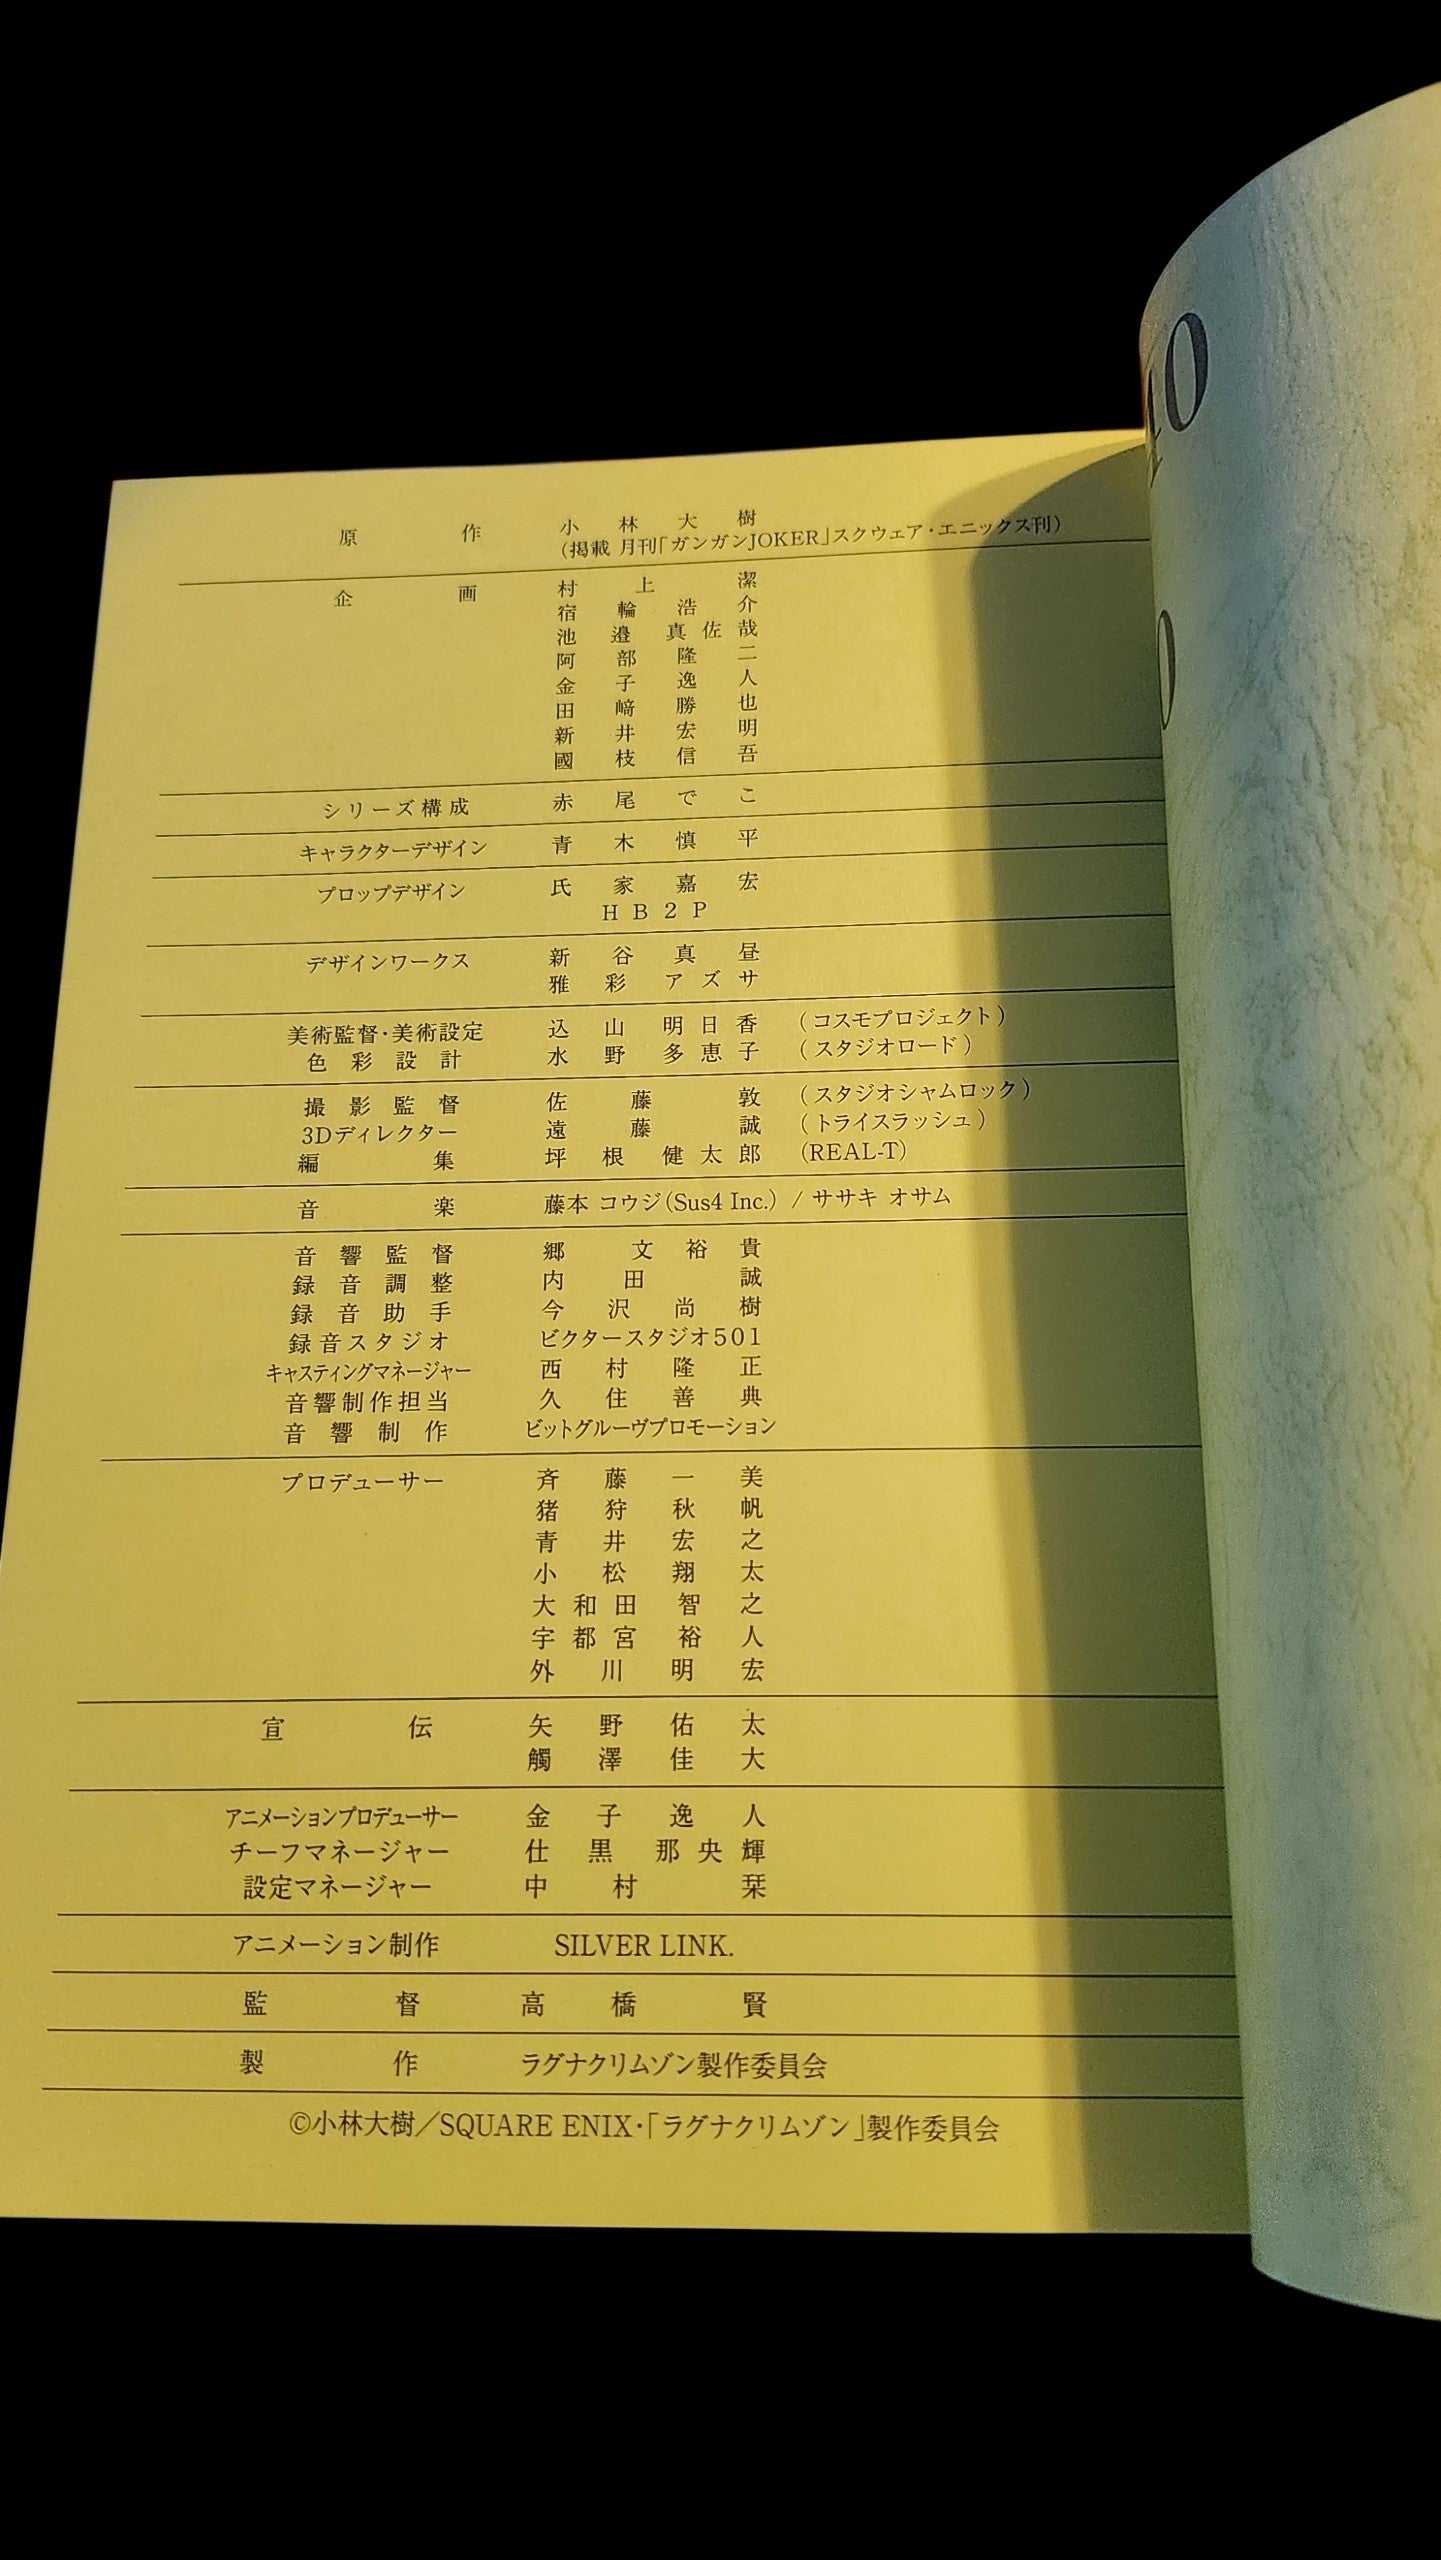 原作 小林大樹
(掲載 月刊「ガンガンJOKER」スクウェア・エニックス刊)
企画 村上潔
宿輪浩介
池邉真佐哉
阿部隆二
金子逸人
田﨑勝也
新井宏明
國枝信吾
シリーズ構成 赤尾でこ
キャラクターデザイン 青木慎平
プロップデザイン 氏家嘉宏
HB2P
デザインワークス 新谷真昼
雅彩アズサ
美術監督・美術設定 込山明日香 (コスモプロジェクト)
色彩設計 水野多恵子 (スタジオロード)
撮影監督 佐藤敦 (スタジオシャムロック)
3Dディレクター 遠藤誠 (トライスラッシュ)
編集 坪根健太郎 (REAL-T)
音楽 藤本 コウジ(Sus4 Inc.) / ササキ オサム
音響監督 郷文裕貴
録音調整 内田誠
録音助手 今沢尚樹
録音スタジオ ビクタースタジオ501
キャスティングマネージャー 西村隆正
音響制作担当 久住善典
音響制作 ビットグルーヴプロモーション
プロデューサー 斉藤一美
猪狩秋帆
青井宏之
小松翔太
大和田智之
宇都宮裕人
外川明宏
宣伝 矢野佑太
觸澤佳大
アニメーションプロデューサー 金子逸人
チーフマネージャー 仕黒那央輝
設定マネージャー 中村栞
アニメーション制作 SILVER LINK.
監督 高橋賢
製作 ラグナクリムゾン製作委員会
©小林大樹／SQUARE ENIX・「ラグナクリムゾン」製作委員会